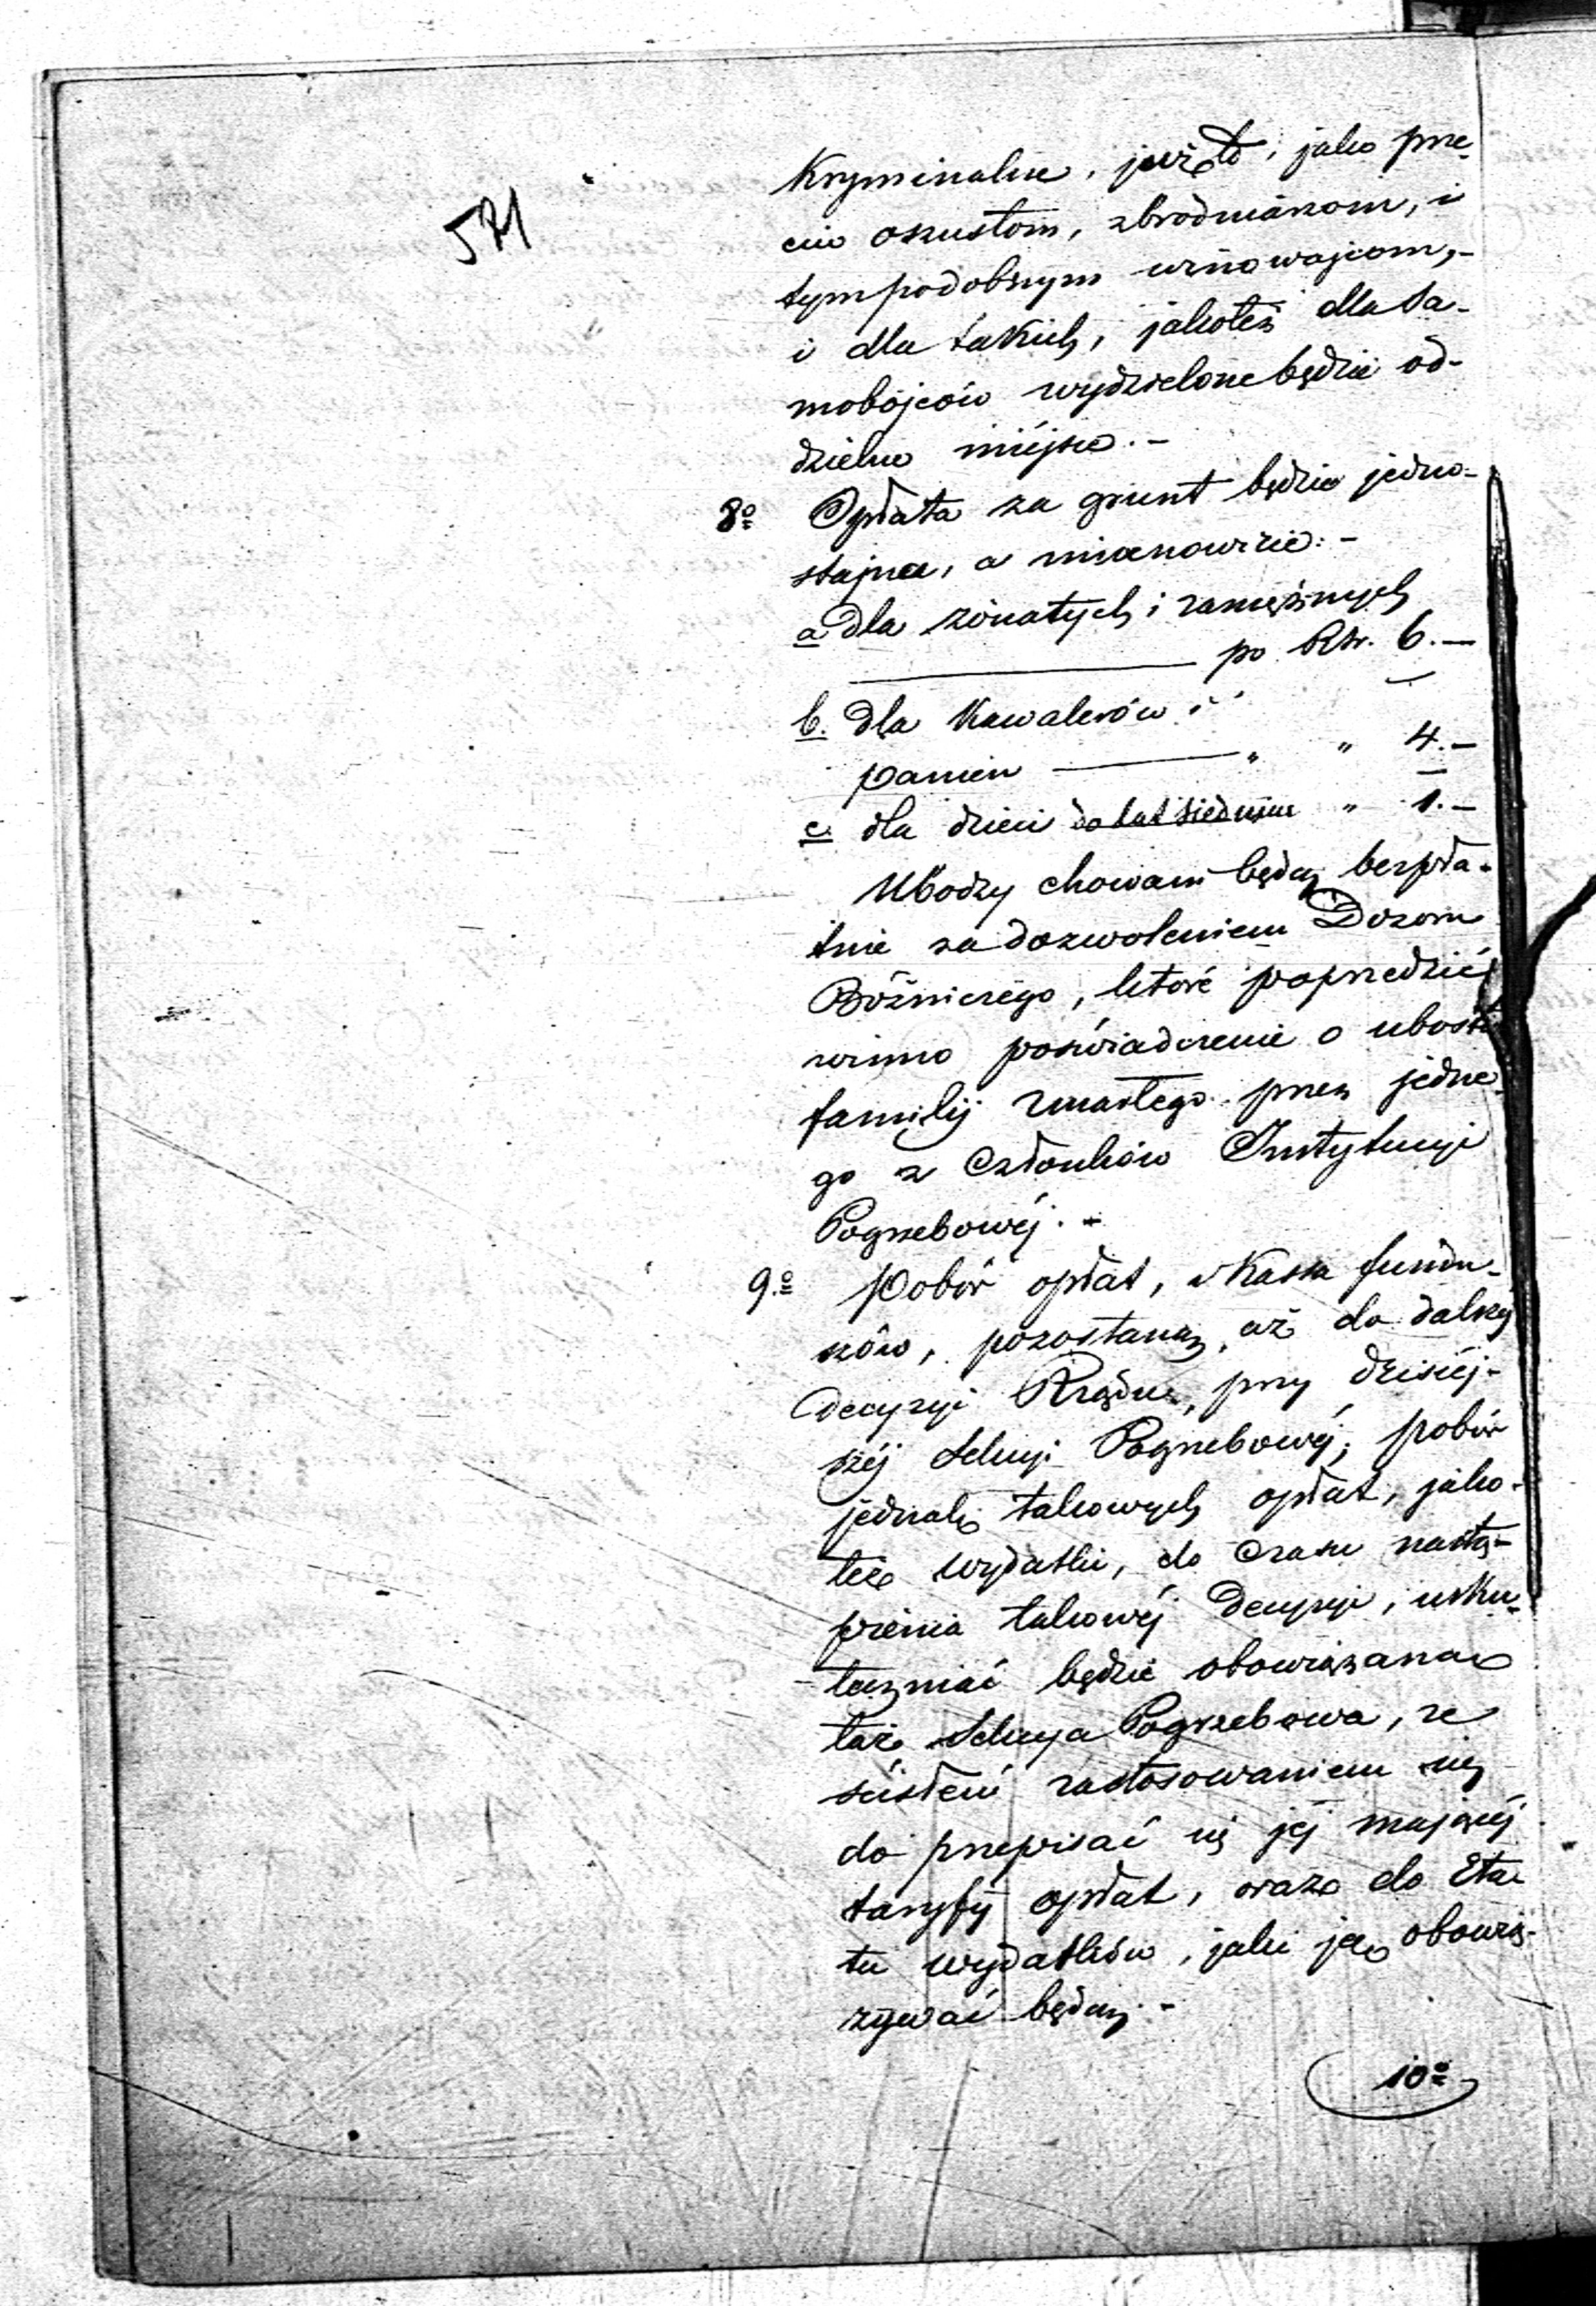 571
Kryminalne, już to, jako prze-
ciw oszustom, zbrodniarzom, i
tym podobnym winowajcom,-
i dla takich, jakoteż dla sa-
mobójców wydzielone będzie od-
dzielne miéjsce.-
8o Opłata za grunt będzie jedno-
stajna, a mianowicie:-
a dla żonatych i zamężnych
po Rsr. 6.-
b. dla Kawalerów i
panien " " 4.-
c. dla dzieci do lat siedmiu " 1.-
Ubodzy chowani będą bezpła-
tnie za dozwoleniem Dozoru
Bóżniczego, które poprzedzić
winno poświadczenie o ubóstwie
familij zmarłego przez jedne-
go z Członków Instytucyi
Pogrzebowéj.-
9.o Pobór opłat, i Kassa fundu-
szów, pozostaną, aż do dalszéj
decyzyi Rządu, przy dzisiéj-
széj Sekcyi Pogrzebowéj; pobór
jednak takowych opłat, jako-
też wydatki, do czasu nastą-
pienia takowéj Decyzyi, usku-
teczniać będzie obowiązana
taż Sekcya Pogrzebowa, ze
ścisłem zastosowaniem się
do przepisać się jéj mającéj
taryfy opłat, oraz do Eta-
tu wydatków, jaki ją obowią-
zywać będzie.-
10o